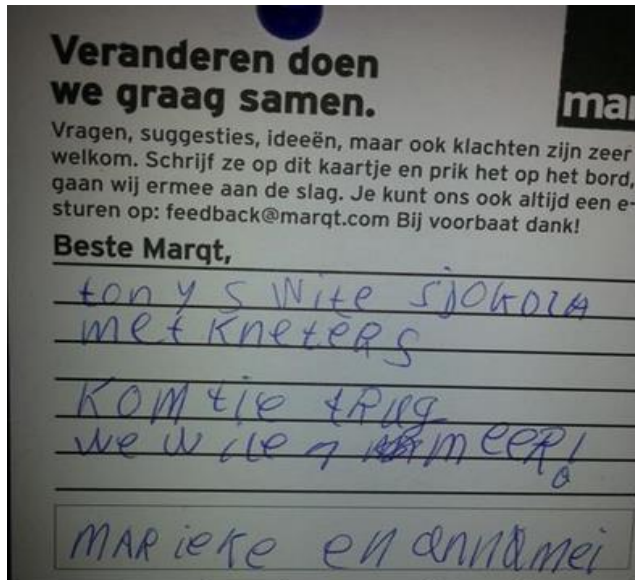 Veranderen doen
we graag samen.
mar
Vragen, suggesties, ideeën, maar ook klachten zijn zeer
welkom. Schrijf ze op dit kaartje en prik het op het bord,
gaan wij ermee aan de slag. Je kunt ons ook altijd een e-
sturen op: feedback@marqt.com Bij voorbaat dank!
Beste Marqt,
tonys wite sjokola
met kneters
komtie trug
we wilen meer!
Marieke en annamei